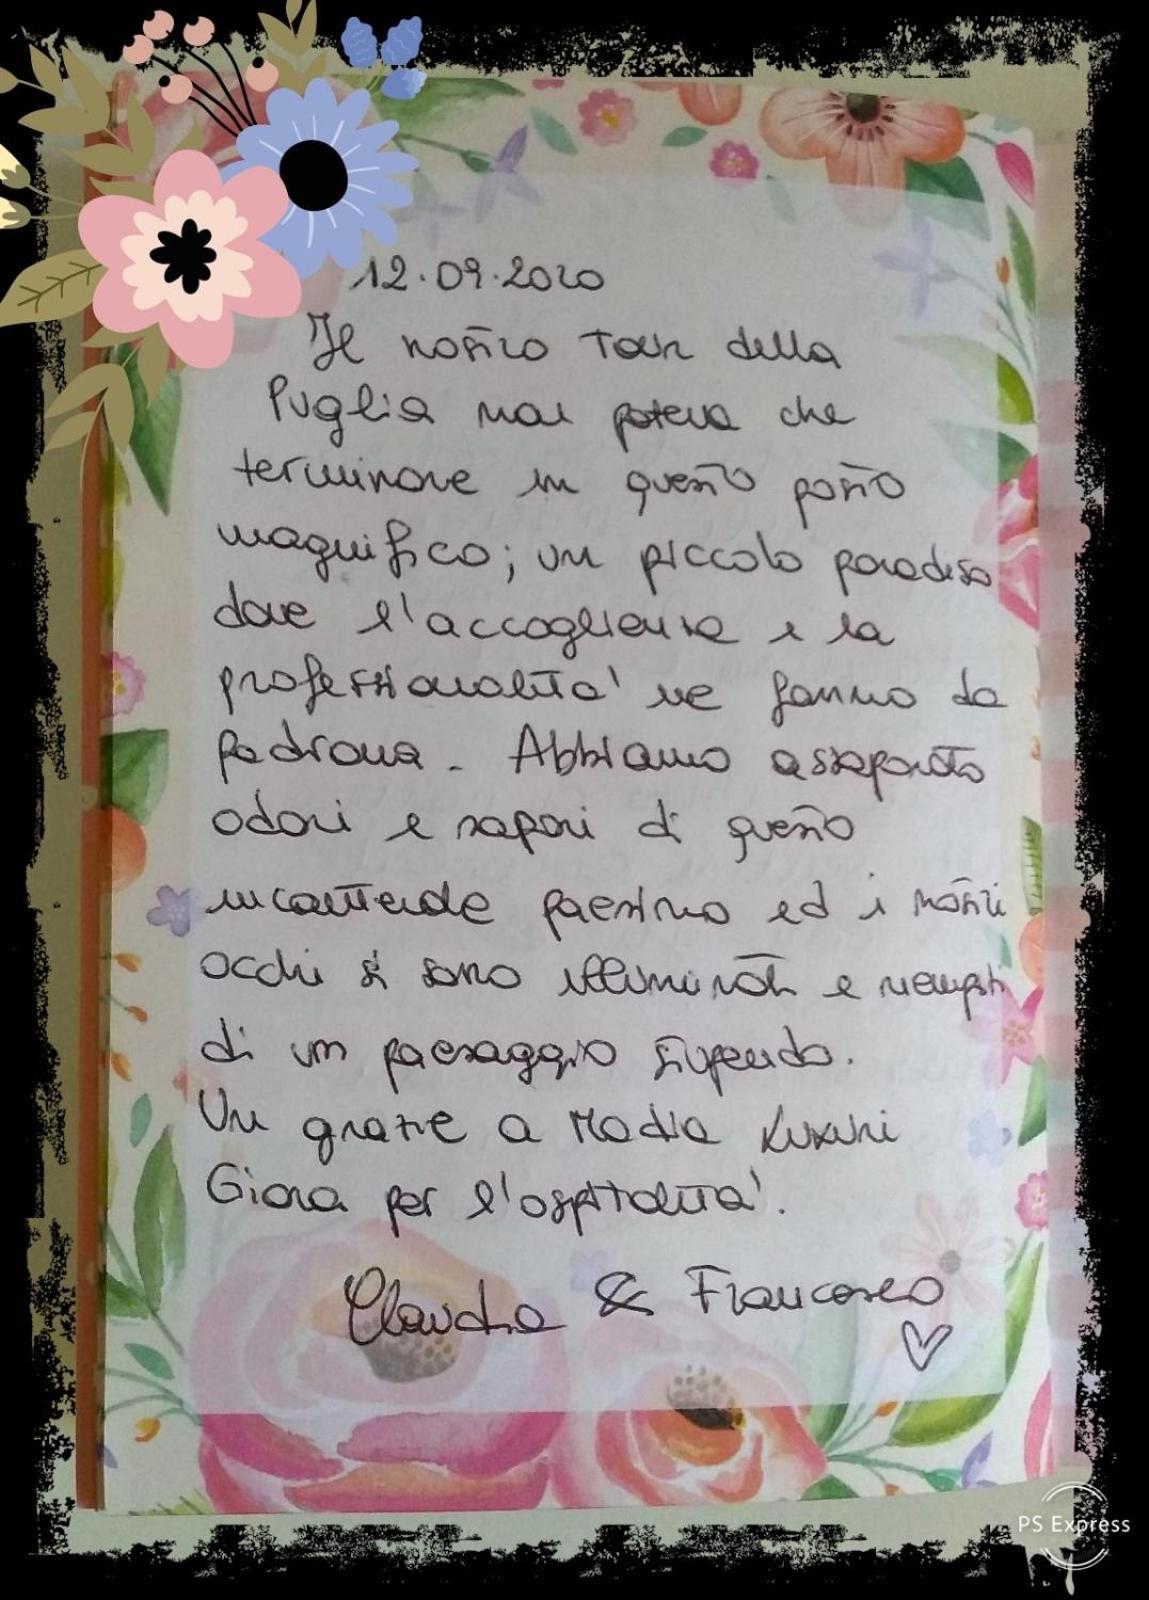 12.09.2020
Il nostro tour della
Puglia non poteva che
terminare in questo posto
magnifico; un piccolo paradiso
dove l'accoglienza e la
professionalita' ne fanno da
padrona. Abbiamo assaporato
odori e sapori di questo
incantevole paesino ed i nostri
occhi si sono illuminati e riempiti
di un paesaggio stupendo.
Un grazie a Madia
per l'ospitalita'.
Claudia & Francesco
PS Express